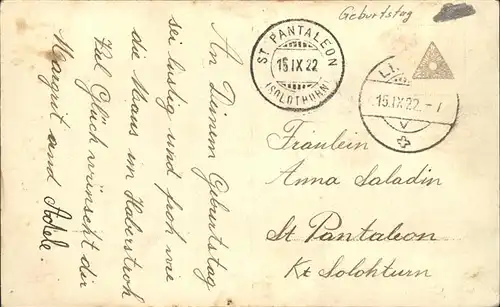 Geburtstag
ST. PANTALEON
15.IX.22
(SOLOTHURN)
15.IX.22.-7
An Deinem Geburtstag
sei lustig und froh wie
die Maus im Haberstroh
Viel Glück wünscht dir
Margrit and Adele.
Fräulein
Anna Saladin
St. Pantaleon
Kt. Solohturn